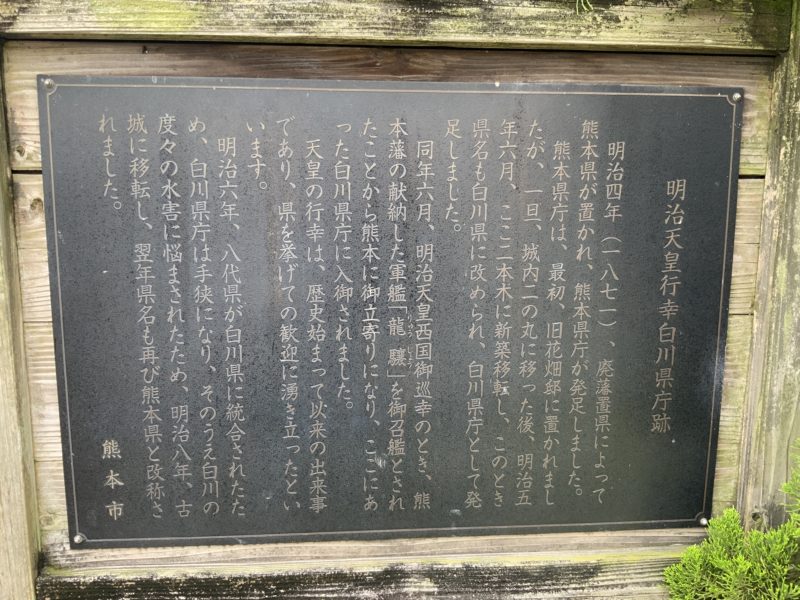 明治天皇行幸白川県庁跡
明治四年（一八七一）、廃藩置県によって
熊本県が置かれ、熊本県庁が発足しました。
熊本県庁は、最初、旧花畑邸に置かれまし
たが、一旦、城内二の丸に移った後、明治五
年六月、ここ二本木に新築移転し、このとき
県名も白川県に改められ、白川県庁として発
足しました。
同年六月、明治天皇西国御巡幸のとき、熊
本藩の献納した軍艦「龍驤」を御召艦とされ
たことから熊本に御立寄りになり、ここにあ
った白川県庁に入御されました。
天皇の行幸は、歴史始まって以来の出来事
であり、県を挙げての歓迎に湧き立ったとい
います。
明治六年、八代県が白川県に統合されたた
め、白川県庁は手狭になり、そのうえ白川の
度々の水害に悩まされたため、明治八年、古
城に移転し、翌年県名も再び熊本県と改称さ
れました。
熊本市